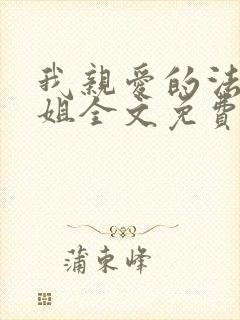 我親愛的法
姐全文免費
蒲東峰